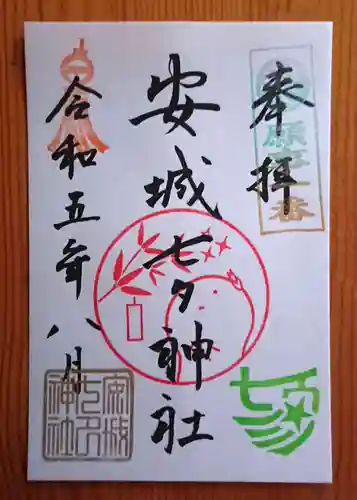 奉拝
安城七夕神社
令和五年八月
願事一番
安城
七夕
神社
七夕